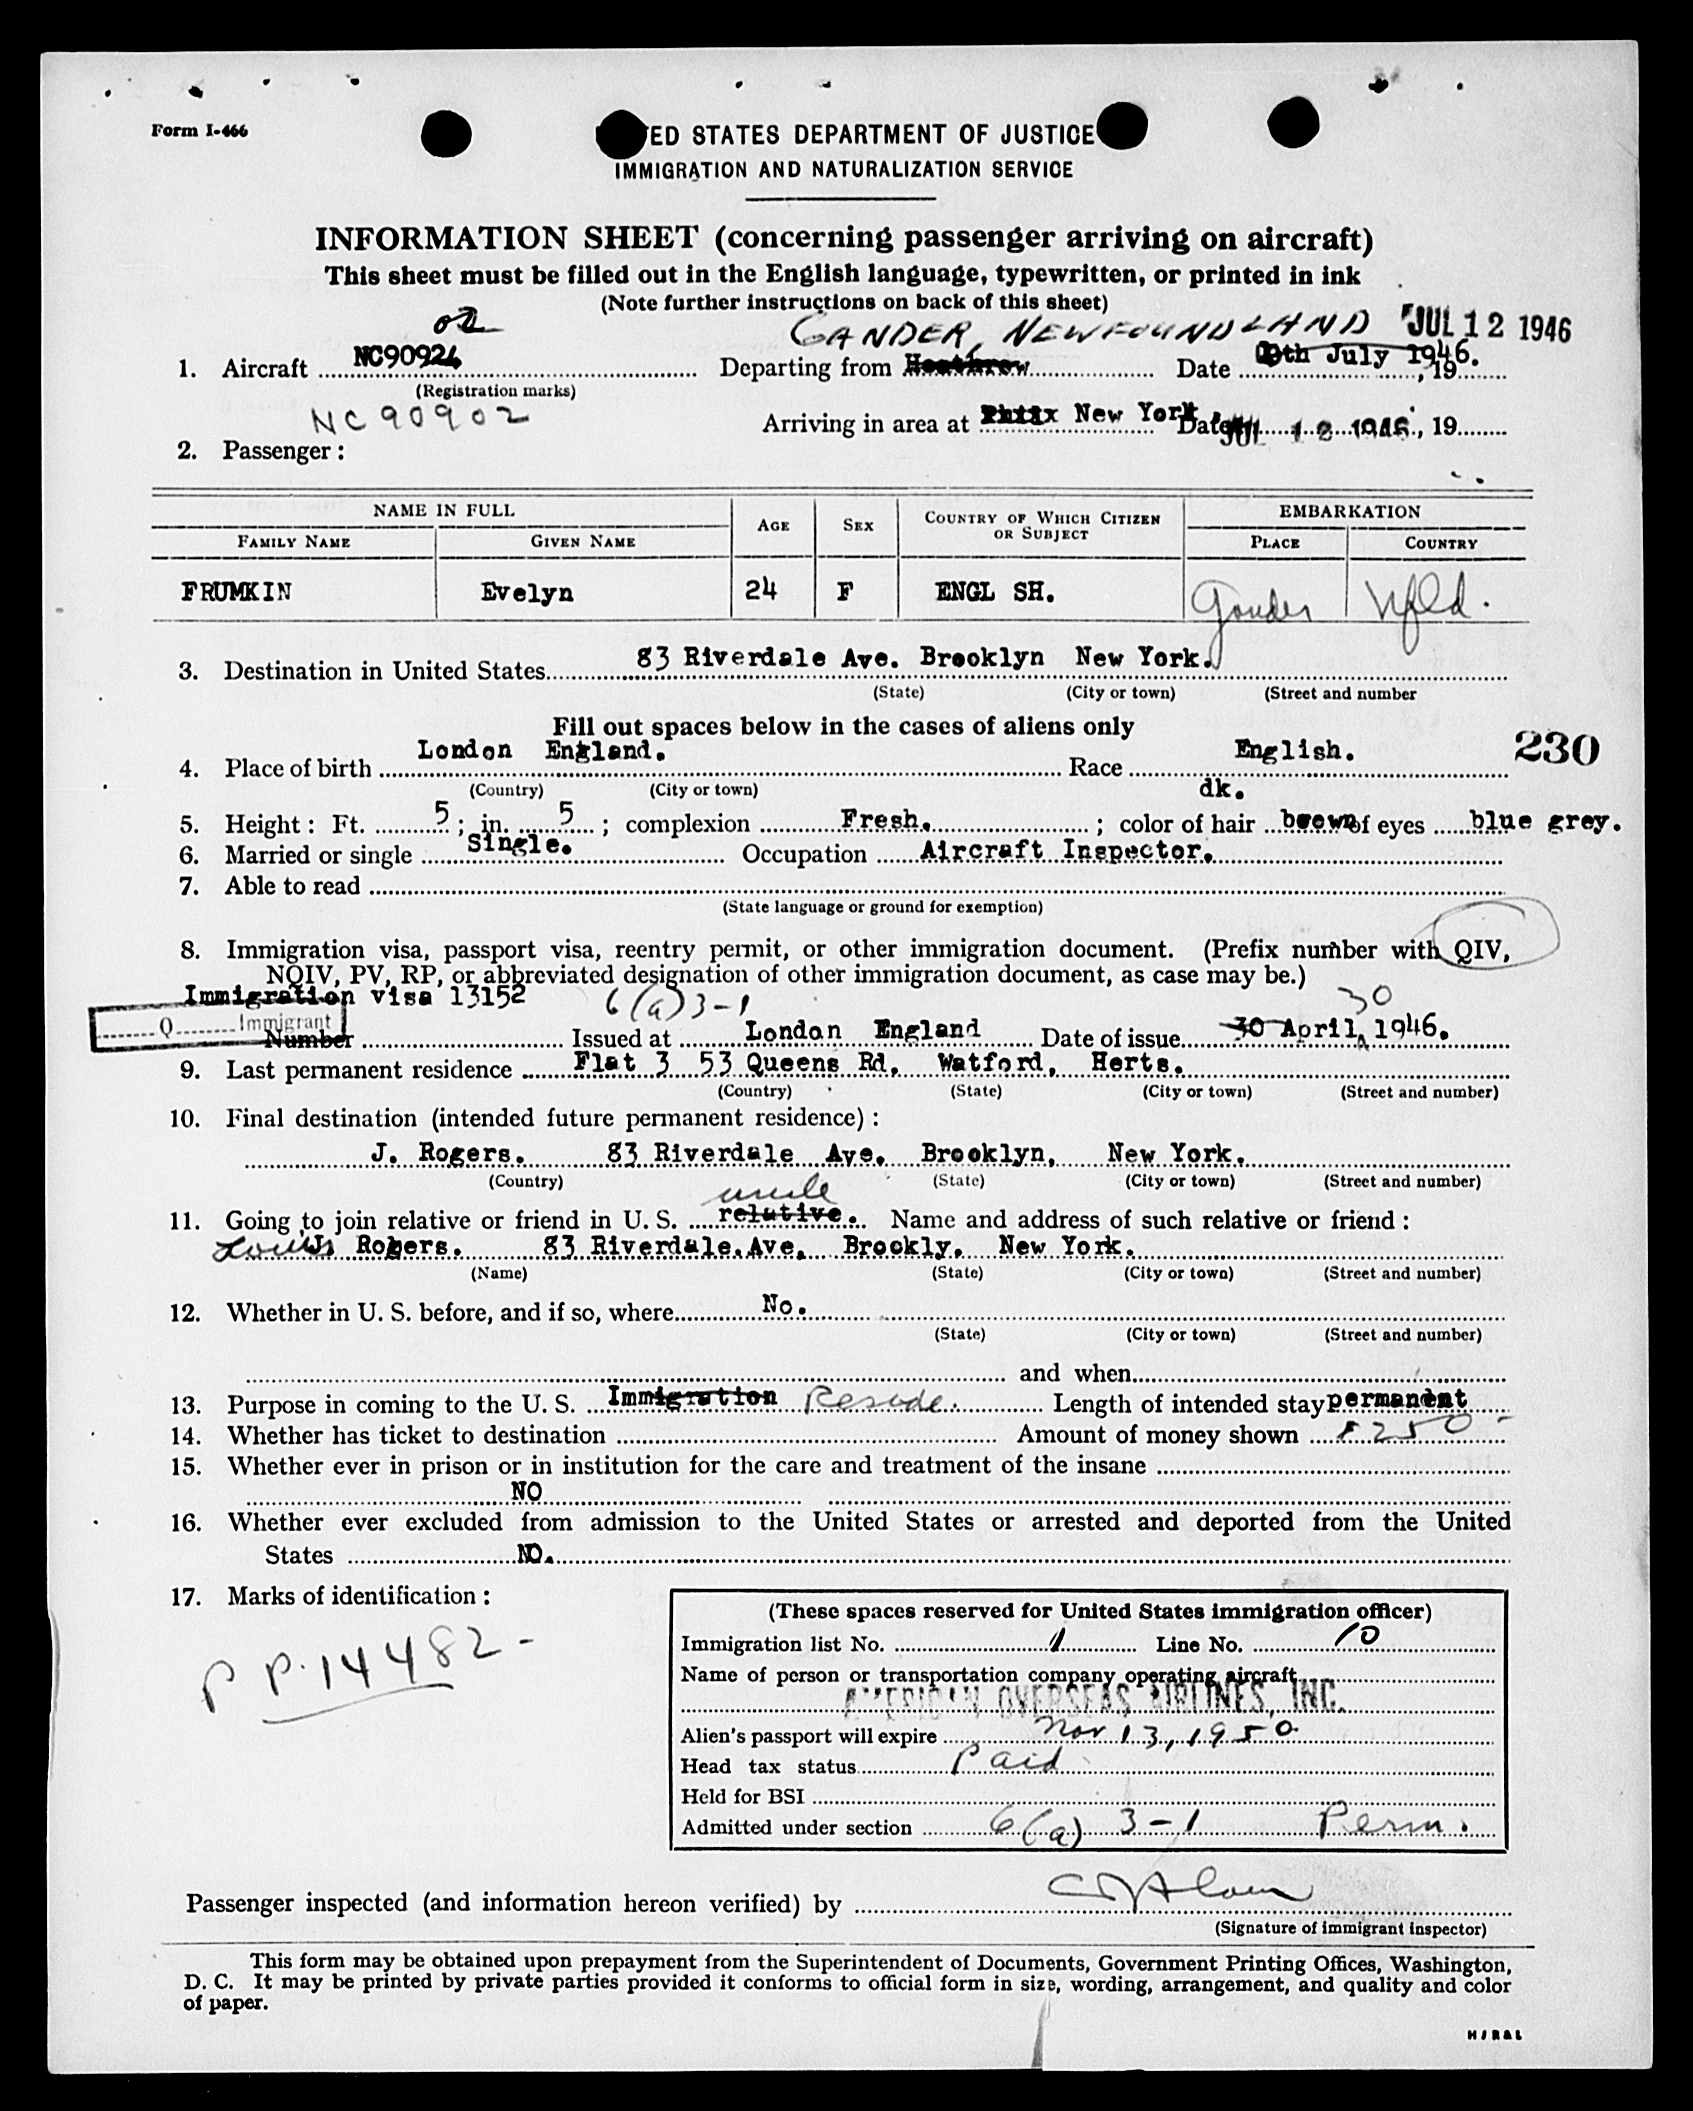 Form I-466
ED STATES DEPARTMENT OF JUSTICE
IMMIGRATION AND NATURALIZATION SERVICE
INFORMATION SHEET (concerning passenger arriving on aircraft)
This sheet must be filled out in the English language, typewritten, or printed in ink
(Note further instructions on back of this sheet)
02 GANDER, NEWFOUNDLAND JUL 12 1946
1. Aircraft NC90924 Departing from Heathrow Date July 1946. , 19
(Registration marks)
NC90902 Arriving in area at New York. Date JUL 12 1946, 19
2. Passenger:
NAME IN FULL AGE SEX COUNTRY OF WHICH CITIZEN OR SUBJECT EMBARKATION
FAMILY NAME GIVEN NAME PLACE COUNTRY
FRUMKIN Evelyn 24 F ENGL SH. Gander Nfld.
3. Destination in United States 83 Riverdale Ave. Brooklyn New York.
(State) (City or town) (Street and number
Fill out spaces below in the cases of aliens only
230
4. Place of birth London England. Race English.
(Country) (City or town)
dk.
5. Height: Ft. 5; in. 5; complexion Fresh.; color of hair brown of eyes blue grey.
6. Married or single Single. Occupation Aircraft Inspector.
7. Able to read
(State language or ground for exemption)
8. Immigration visa, passport visa, reentry permit, or other immigration document. (Prefix number with QIV,
NQIV, PV, RP, or abbreviated designation of other immigration document, as case may be.)
Immigration visa 13152 6(a)3-1 30
Q Immigrant
Number Issued at London England Date of issue 30 April, 1946.
9. Last permanent residence Flat 3 53 Queens Rd. Watford, Herts.
(Country) (State) (City or town) (Street and number)
10. Final destination (intended future permanent residence):
J. Rogers. 83 Riverdale Ave. Brooklyn, New York.
(Country) (State) (City or town) (Street and number)
uncle
11. Going to join relative or friend in U. S. relative. Name and address of such relative or friend:
Louis J. Rogers. 83 Riverdale. Ave. Brookly. New York.
(Name) (State) (City or town) (Street and number)
12. Whether in U. S. before, and if so, where No.
(State) (City or town) (Street and number)
and when
13. Purpose in coming to the U. S. Immigration Reside. Length of intended stay permanent
14. Whether has ticket to destination Amount of money shown 250-
15. Whether ever in prison or in institution for the care and treatment of the insane
NO
16. Whether ever excluded from admission to the United States or arrested and deported from the United
States NO.
17. Marks of identification:
PP.14482-
(These spaces reserved for United States immigration officer)
Immigration list No. 1 Line No. 10
Name of person or transportation company operating aircraft
AMERICAN OVERSEAS AIRLINES, INC.
Alien's passport will expire Nov 13, 1950.
Head tax status Paid
Held for BSI
Admitted under section 6(a) 3-1 Perm.
Passenger inspected (and information hereon verified) by
(Signature of immigrant inspector)
This form may be obtained upon prepayment from the Superintendent of Documents, Government Printing Offices, Washington,
D. C. It may be printed by private parties provided it conforms to official form in size, wording, arrangement, and quality and color
of paper.